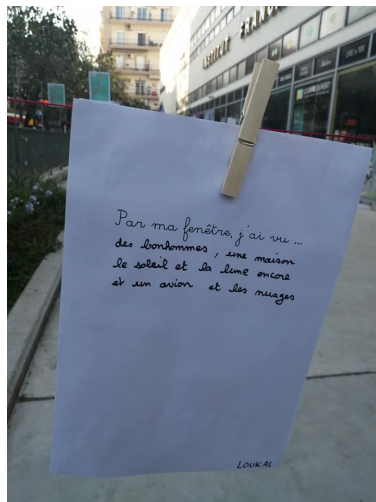 INSTITUT FRANÇ
Par ma fenêtre, j'ai vu ...
des bonhommes, une maison
le soleil et la lune encore
et un avion et les nuages
LOUKAS